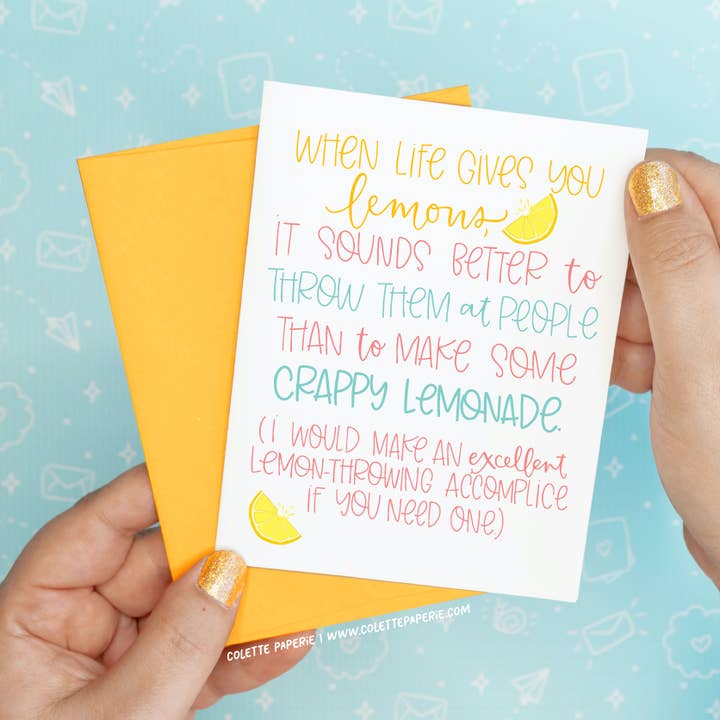 WHEN LIFE GIVES YOU
lemons,
IT SOUNDS BETTER to
THROW THEM at PEOPLE
THAN to MAKE SOME
CRAPPY LEMONADE.
(I WOULD MAKE AN excellent
LEMON-THROWING ACCOMPLICE
IF YOU NEED ONE.)
COLETTE PAPERIE | WWW.COLETTEPAPERIE.COM